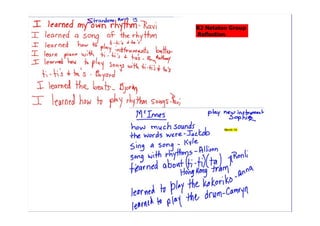 Strandomg 15
I learned my own rhythm - Ravi
I learned a song of the rhythm
I learned how to play instruments better
learn piano with ti-ti's + ta's -
I learned how to play songs with ti-ti's + ta's
ti-ti's + ta's - Bayard
I learned the beats - Bjorn
I learned how to play rhythm songs - Ravi
K1 Notation Group
Reflection
McInnes
play new instrument
Sophie
how much sounds
the words were - Jackob
March 14
Sing a song - Kyle
song with rhythms - Allison
learned about (ti-ti) (ta) - Ronli
Hong Kong tram - anna
learned to play the kokoriko
learned to play the drum - Camryn